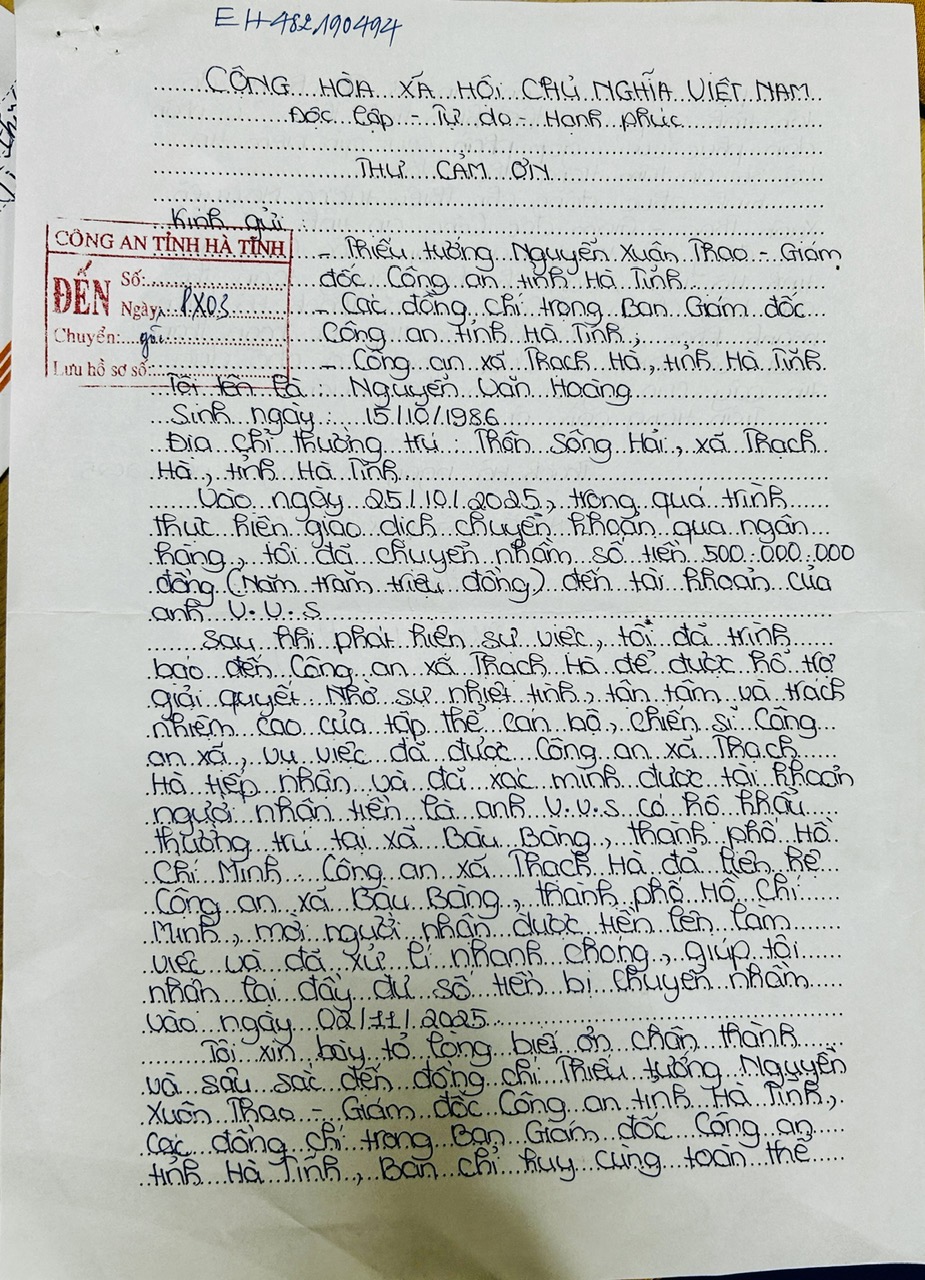 EH482190494
CỘNG HÒA XÃ HỘI CHỦ NGHĨA VIỆT NAM
Độc lập - Tự do - Hạnh phúc
THƯ CẢM ƠN
Kính gửi:
CÔNG AN TỈNH HÀ TĨNH
ĐẾN
Số:
Ngày: PX03
Chuyển:
Lưu hồ sơ số:
- Thiếu tướng Nguyễn Xuân Thao - Giám
đốc Công an tỉnh Hà Tĩnh
- Các đồng chí trong Ban Giám đốc
Công an tỉnh Hà Tĩnh;
- Công an xã Thạch Hà, tỉnh Hà Tĩnh
Tôi tên là: Nguyễn Văn Hoàng
Sinh ngày: 15/10/1986
Địa chỉ thường trú: Thôn Sông Hải, xã Thạch
Hà, tỉnh Hà Tĩnh
Vào ngày 25/10/2025, trong quá trình
thực hiện giao dịch chuyển khoản qua ngân
hàng, tôi đã chuyển nhầm số tiền 500.000.000
đồng (Năm trăm triệu đồng) đến tài khoản của
anh V.V.S
Sau khi phát hiện sự việc, tôi đã trình
báo đến Công an xã Thạch Hà để được hỗ trợ
giải quyết. Nhờ sự nhiệt tình, tận tâm và trách
nhiệm cao của tập thể cán bộ, chiến sĩ Công
an xã, vụ việc đã được Công an xã Thạch
Hà tiếp nhận và đã xác minh được tài khoản
người nhận tiền là anh V.V.S có hộ khẩu
thường trú tại xã Bàu Bàng, thành phố Hồ
Chí Minh. Công an xã Thạch Hà đã liên hệ
Công an xã Bàu Bàng, thành phố Hồ Chí
Minh, mời người nhận được tiền lên làm
việc và đã xử lí nhanh chóng, giúp tôi
nhận lại đầy đủ số tiền bị chuyển nhầm
vào ngày 02/11/2025.
Tôi xin bày tỏ lòng biết ơn chân thành
và sâu sắc đến đồng chí Thiếu tướng Nguyễn
Xuân Thao - Giám đốc Công an tỉnh Hà Tĩnh,
các đồng chí trong Ban Giám đốc Công an
tỉnh Hà Tĩnh, Ban chỉ huy cùng toàn thể